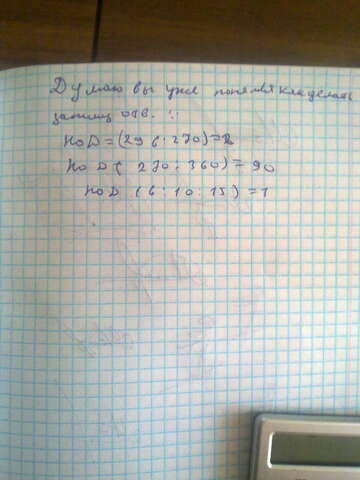 Думаю вы уже поняли как делать
запишу отв. :
НОD = (296:270)=2
НОD (270:360)= 90
НОD (6:10:15)=1